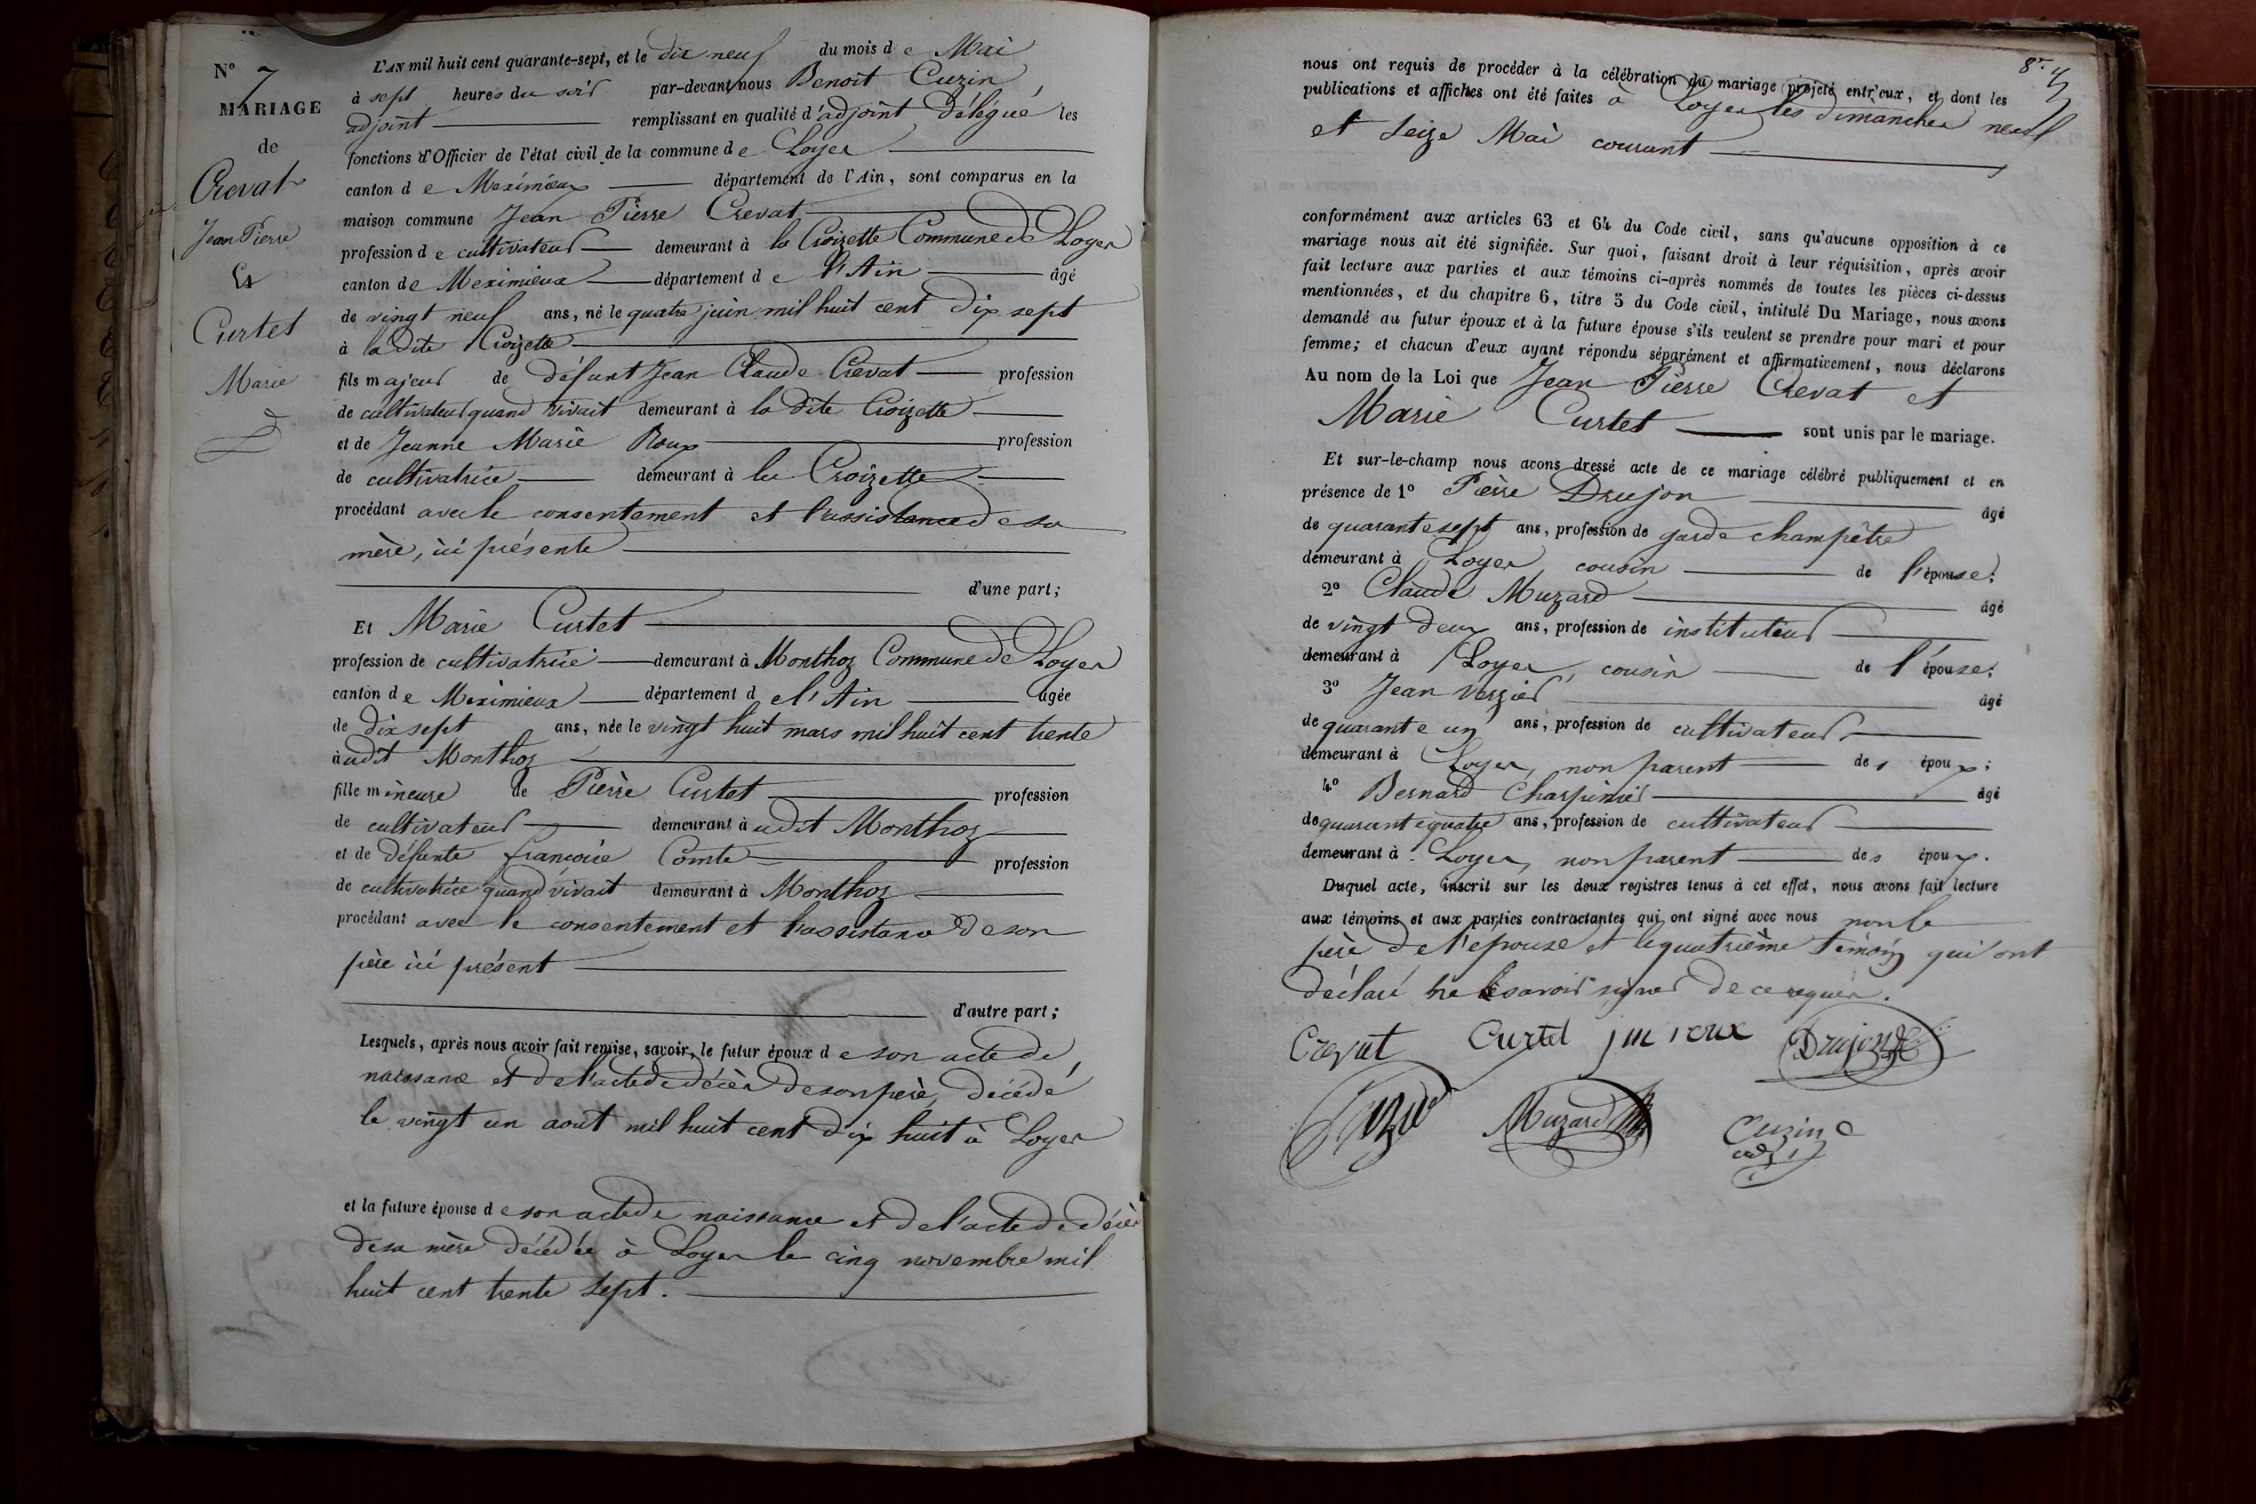 N° 7
MARIAGE
de
Crevat
Jean Pierre
Et
Curtet
Marie
L'AN mil huit cent quarante-sept, et le dix neuf du mois de Mai
à sept heures du soir par-devant nous Benoit Cuzin,
adjoint remplissant en qualité d'adjoint Délégué les
fonctions d'Officier de l'état civil de la commune de Loyes
canton de Meximieux département de l'Ain, sont comparus en la
maison commune Jean Pierre Crevat
profession de cultivateur demeurant à la Croizette Commune de Loyes
canton de Meximieux département de l'Ain âgé
de vingt neuf ans, né le quatre juin mil huit cent dix sept
à la dite Croizette
fils majeur de défunt Jean Claude Crevat profession
de cultivateur quand vivait demeurant à la dite Croizette
et de Jeanne Marie Roux profession
de cultivatrice demeurant à la Croizette
procédant avec le consentement et l'assistance de sa
mère, ici présente
d'une part;
Et Marie Curtet
profession de cultivatrice demeurant à Monthoz Commune de Loyes
canton de Meximieux département de l'Ain âgée
de dix sept ans, née le vingt huit mars mil huit cent trente
audit Monthoz
fille mineure de Pierre Curtet profession
de cultivateur demeurant audit Monthoz
et de défunte françoise Comte profession
de cultivatrice quand vivait demeurant à Monthoz
procédant avec le consentement et l'assistance de son
père ici présent
d'autre part;
Lesquels, après nous avoir fait remise, savoir, le futur époux de son acte de
naissance et de l'acte de décès de son père, décédé
le vingt un août mil huit cent dix huit à Loyes
et la future épouse de son acte de naissance et de l'acte de décès
de sa mère décédée à Loyes le cinq novembre mil
huit cent trente sept.
nous ont requis de procéder à la célébration du mariage projeté entr'eux, et dont les
publications et affiches ont été faites à Loyes les dimanches neuf
et seize Mai courant
conformément aux articles 63 et 64 du Code civil, sans qu'aucune opposition à ce
mariage nous ait été signifiée. Sur quoi, faisant droit à leur réquisition, après avoir
fait lecture aux parties et aux témoins ci-après nommés de toutes les pièces ci-dessus
mentionnées, et du chapitre 6, titre 5 du Code civil, intitulé Du Mariage, nous avons
demandé au futur époux et à la future épouse s'ils veulent se prendre pour mari et pour
femme; et chacun d'eux ayant répondu séparément et affirmativement, nous déclarons
Au nom de la Loi que Jean Pierre Crevat et
Marie Curtet sont unis par le mariage.
Et sur-le-champ nous avons dressé acte de ce mariage célébré publiquement et en
présence de 1° Pierre Drujon âgé
de quarante sept ans, profession de garde champêtre
demeurant à Loyes cousin de l'épouse;
2° Claude Muzard âgé
de vingt deux ans, profession de instituteur
demeurant à Loyes, cousin de l'épouse;
3° Jean Verzier âgé
de quarante un ans, profession de cultivateur
demeurant à Loyes, non parent des époux;
4° Bernard Charpinier âgé
de quarante quatre ans, profession de cultivateur
demeurant à Loyes, non parent des époux.
Duquel acte, inscrit sur les deux registres tenus à cet effet, nous avons fait lecture
aux témoins et aux parties contractantes qui ont signé avec nous non le
père de l'épouse et le quatrième témoin qui ont
déclaré ne le savoir signer de ce requis.
Crevat Curtet jm roux Drujon
Muzard Cuzin
adj